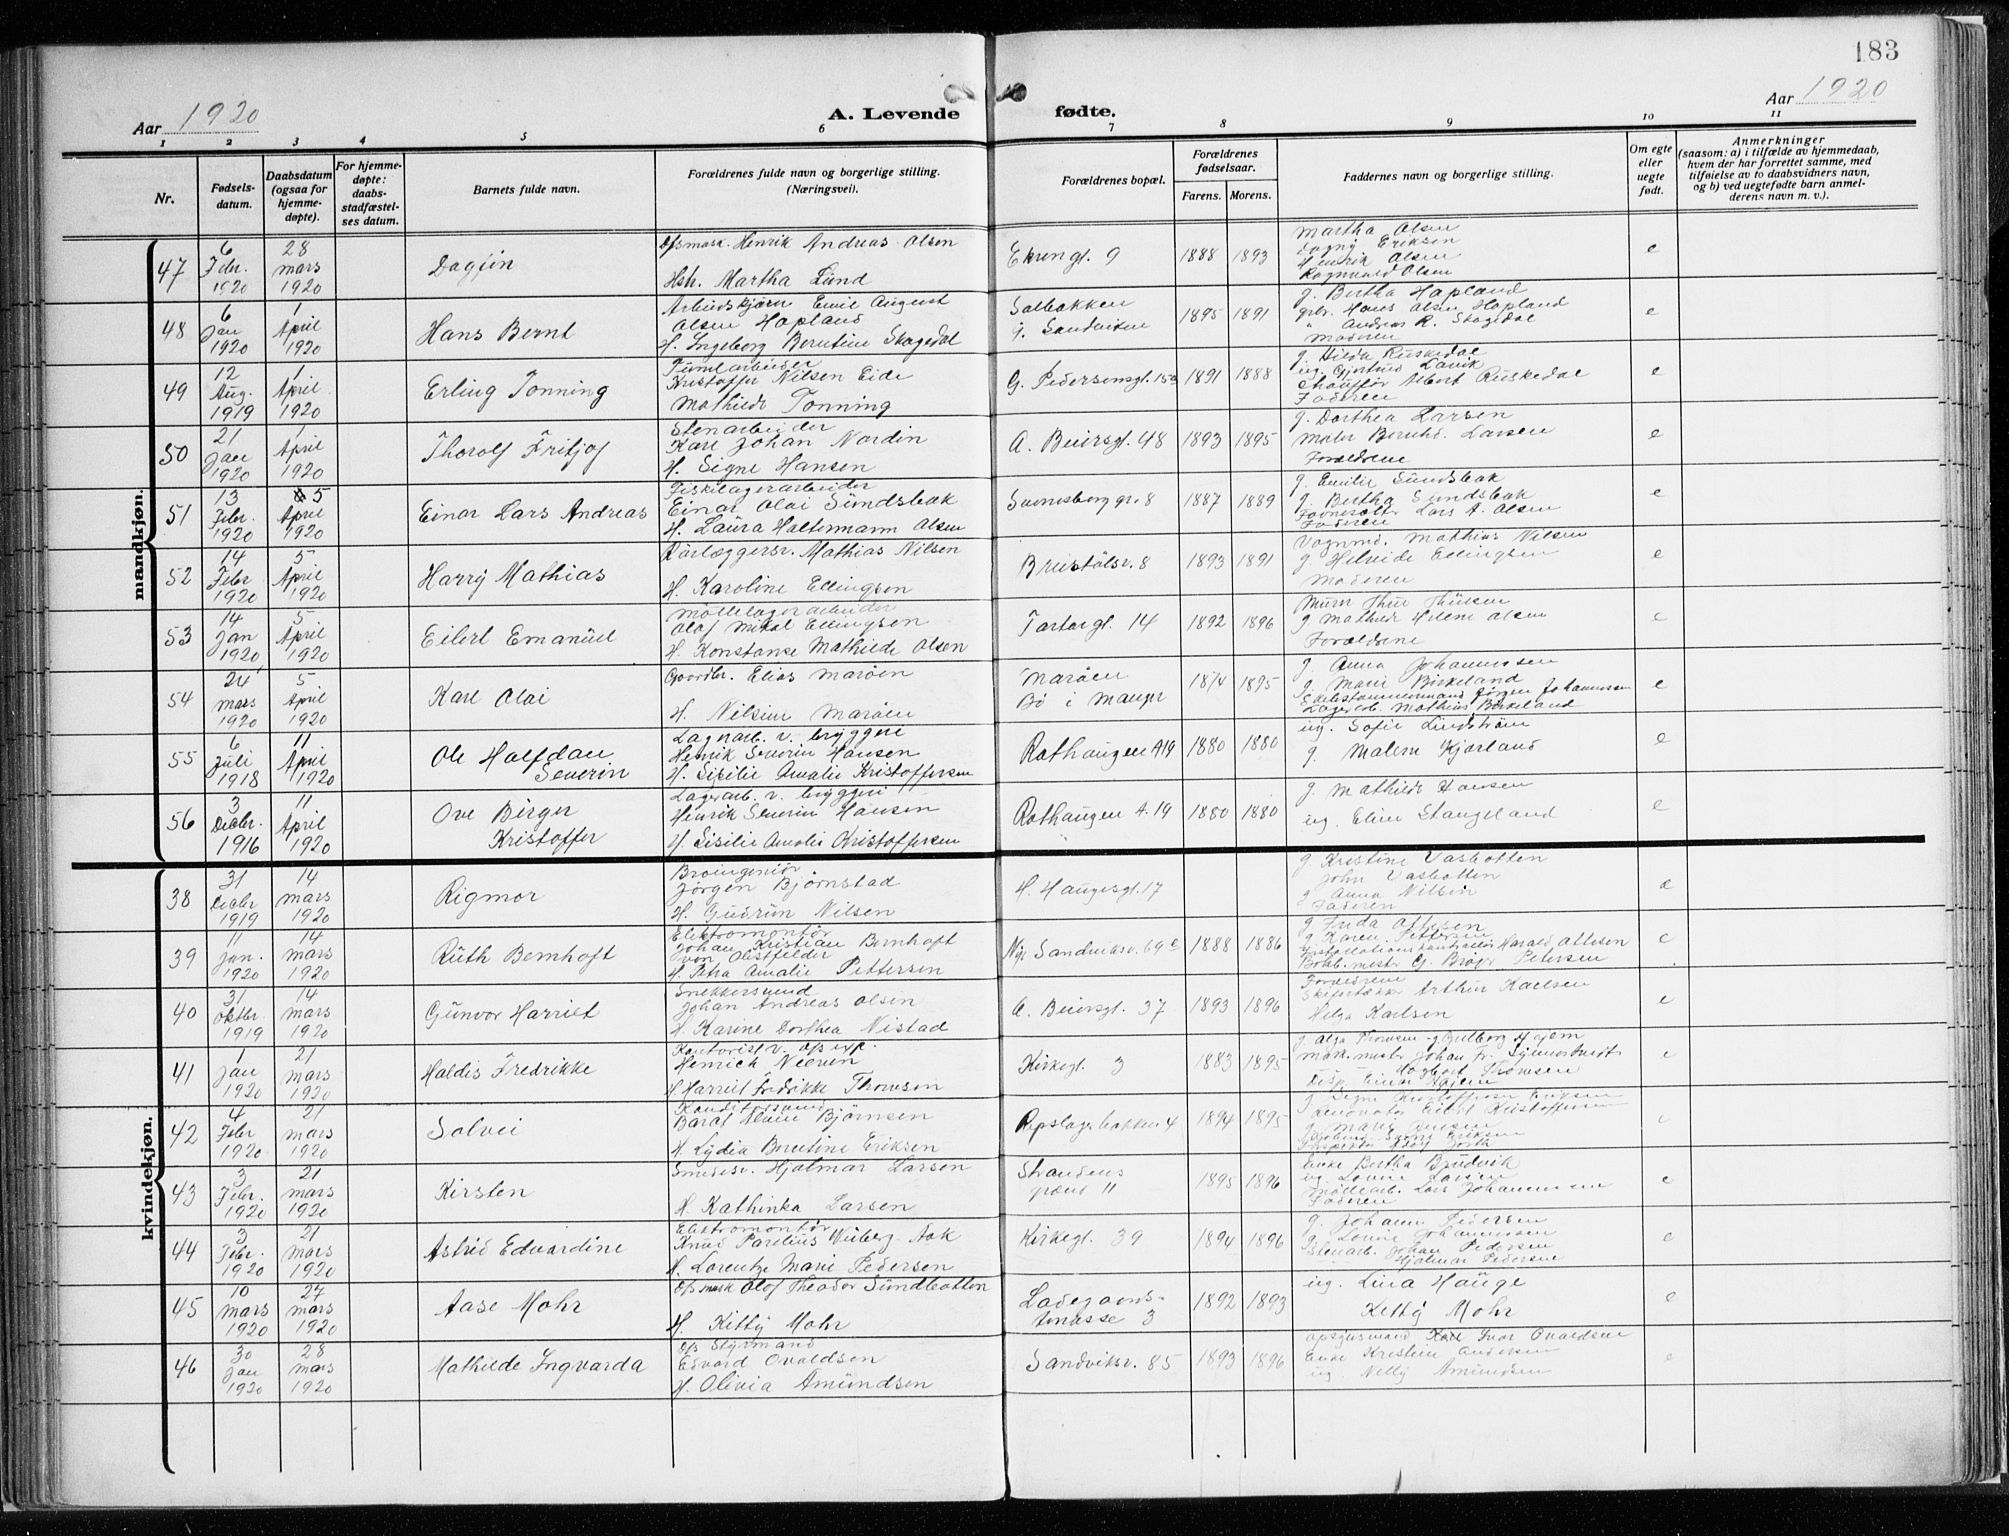 183
Aar 1920
A. Levende fødte.
Aar 1920
1 2 3 4 5 6 7 8 9 10 11
Nr.
Fødsels-
datum.
Daabsdatum
(ogsaa for
hjemme-
døpte).
For hjemme-
døpte:
daabs-
stadfæstel-
ses datum.
Barnets fulde navn.
Forældrenes fulde navn og borgerlige stilling.
(Næringsvei).
Forældrenes bopæl.
Forældrenes
fødselsaar.
Farens. Morens.
Faddernes navn og borgerlige stilling.
Om egte
eller
uegte
født.
Anmerkninger
(saasom: a) i tilfælde av hjemmedaab,
hvem der har forrettet samme, med
tilføielse av to daabsvidners navn,
og b) ved uegtefødte barn anmel-
derens navn m. v.).
mandkjøn.
47
6 Febr. 1920
28 mars 1920
Dagfin
Henrik Andreas Olsen
Martha Lund
Ekrengt. 9
1888 1893
Martha Olsen
Dagny Eriksen
Henrik Olsen
Ragnvald Olsen
e
48
6 Jan 1920
1 April 1920
Hans Bernt
Emil August
Olsen Hopland
H. Ingeborg Berntine Skagedal
Solbakken
Sandviken
1895 1891
g. Bertha Hopland
gbr. Hans Olsen Hopland
Andreas R. Skagedal
Moderen
e
49
12 Aug. 1919
1 April 1920
Erling Tonning
Kristoffer Nilsen Eide
Mathilde Tonning
G. Pedersensgt. 15a
1891 1888
g. Hilda Ruskedal
Chauffør Albert Ruskedal
Faderen
e
50
21 Jan 1920
1 April 1920
Thorolf Fritjof
Stenarbeider
Karl Johan Nordin
H. Signe Hansen
A. Beiersgt. 48
1893 1895
g. Dorthea Larsen
Maler Bernhd. Larsen
Forældrene
e
51
13 Febr. 1920
5 April 1920
Einar Lars Andreas
Einar Olai Sundsbak
H. Laura Haltermann Olsen
1887 1889
g. Emilie Sundsbak
g. Bertha Sundsbak
Lars A. Olsen
Faderen
e
52
14 Febr 1920
5 April 1920
Harry Mathias
Mathias Nilsen
H. Karoline Ellingsen
8
1893 1891
Vognmd. Mathias Nilsen
Ellingsen
Moderen
e
53
14 Jan 1920
5 April 1920
Eilert Emanuel
Møllelagerarbeider
Olaf Mikal Ellingsen
H. Konstanse Mathilde Olsen
Tartargt. 14
1892 1896
g. Mathilde Helene Olsen
Forældrene
e
54
24 mars 1920
5 April 1920
Karl Olai
Gaardbr. Elias Marøen
H. Nilsine Marøen
Marøen
Bø i Manger
1874 1895
g. Anna Johannessen
g. Marie Birkeland
Jørgen Johannessen
Lagerarb. Mathias Birkeland
e
55
6 Juli 1918
11 April 1920
Ole Halfdan
Severin
Lagerarb. v. bryggeri
Henrik Severin Hansen
H. Sisilie Amalie Kristoffersen
Rothaugen A19
1880 1880
ug. Sofie Lindstrøm
g. Malene Kjørland
e
56
3 Decbr. 1916
11 April 1920
Ove Birger
Kristoffer
Lagerarb. v. bryggeri
Henrik Severin Hansen
H. Sisilie Amalie Kristoffersen
Rothaugen A. 19
1880 1880
g. Mathilde Hansen
ug. Eline Stangeland
e
kvindekjøn.
38
31 Decbr 1919
14 mars 1920
Rigmor
Broingeniør
Jørgen Bjørnstad
H. Gudrun Nilsen
H. Haugesgt. 17
g. Kristine Vasbotten
John Vasbotten
g. Anna Nilsen
Faderen
e
39
11 Jan. 1920
14 mars 1920
Ruth Bernhoft
Elektromontør
Johan Kristian Bernhoft
von
H. Petra Amalie Pettersen
Nye Sandviksv. 69c
1888 1886
g. Frida Ottesen
g. Karen Pettersen
Harald Ottesen
Petersen
e
40
31 Oktbr. 1919
14 mars 1920
Gunvor Harriet
Snekkersvend
Johan Andreas Olsen
H. Karine Dorthea Nistad
A. Beiersgt. 37
1893 1896
Forældrene
Skifertækker Arthur Karlsen
Helga Karlsen
e
41
1 Jan 1920
21 mars 1920
Haldis Fredrikke
Henrich
H. Harriet Fredrikke Thomsen
Kirkegt. 3
1883 1895
Thomsen
e
42
4 Febr 1920
21 mars 1920
Solvei
Bjørnsen
H. Lydia Berntine Eriksen
Repslagerbakken 4
1894 1895
43
3 Febr. 1920
21 mars 1920
Kirsten
Smedesv. Hjalmar Larsen
H. Kathinka Larsen
Strandens
11
1895 1896
Enke Bertha Brudvik
Møllearb. Lars Johannessen
Faderen
e
44
3 Febr. 1920
21 mars 1920
Astrid Edvardine
Elektromontør
Knud Parelius Wiberg Aak
H. Lorentze Marie Pedersen
Kirkegt. 39
1894 1896
g. Johanne Pedersen
g. Lovise Johannessen
Stenarb. Johan Pedersen
Hjalmar Pedersen
e
45
10 mars 1920
27 mars 1920
Aase Mohr
Olaf Theodor Sundbotten
H. Kitty Mohr
Ladegaards-
terrasse 3
1892 1893
ug. Lina Hauge
Kitty Mohr
e
46
30 Jan 1920
28 mars 1920
Mathilde Ingvarda
Styrmand
Edvard Ovaldsen
H. Olivia Amundsen
Sandviksv. 85
1893 1896
Opsynsmand Karl Ivar Ovaldsen
Enke Kristine Andersen
ug. Nelly Amundsen
e